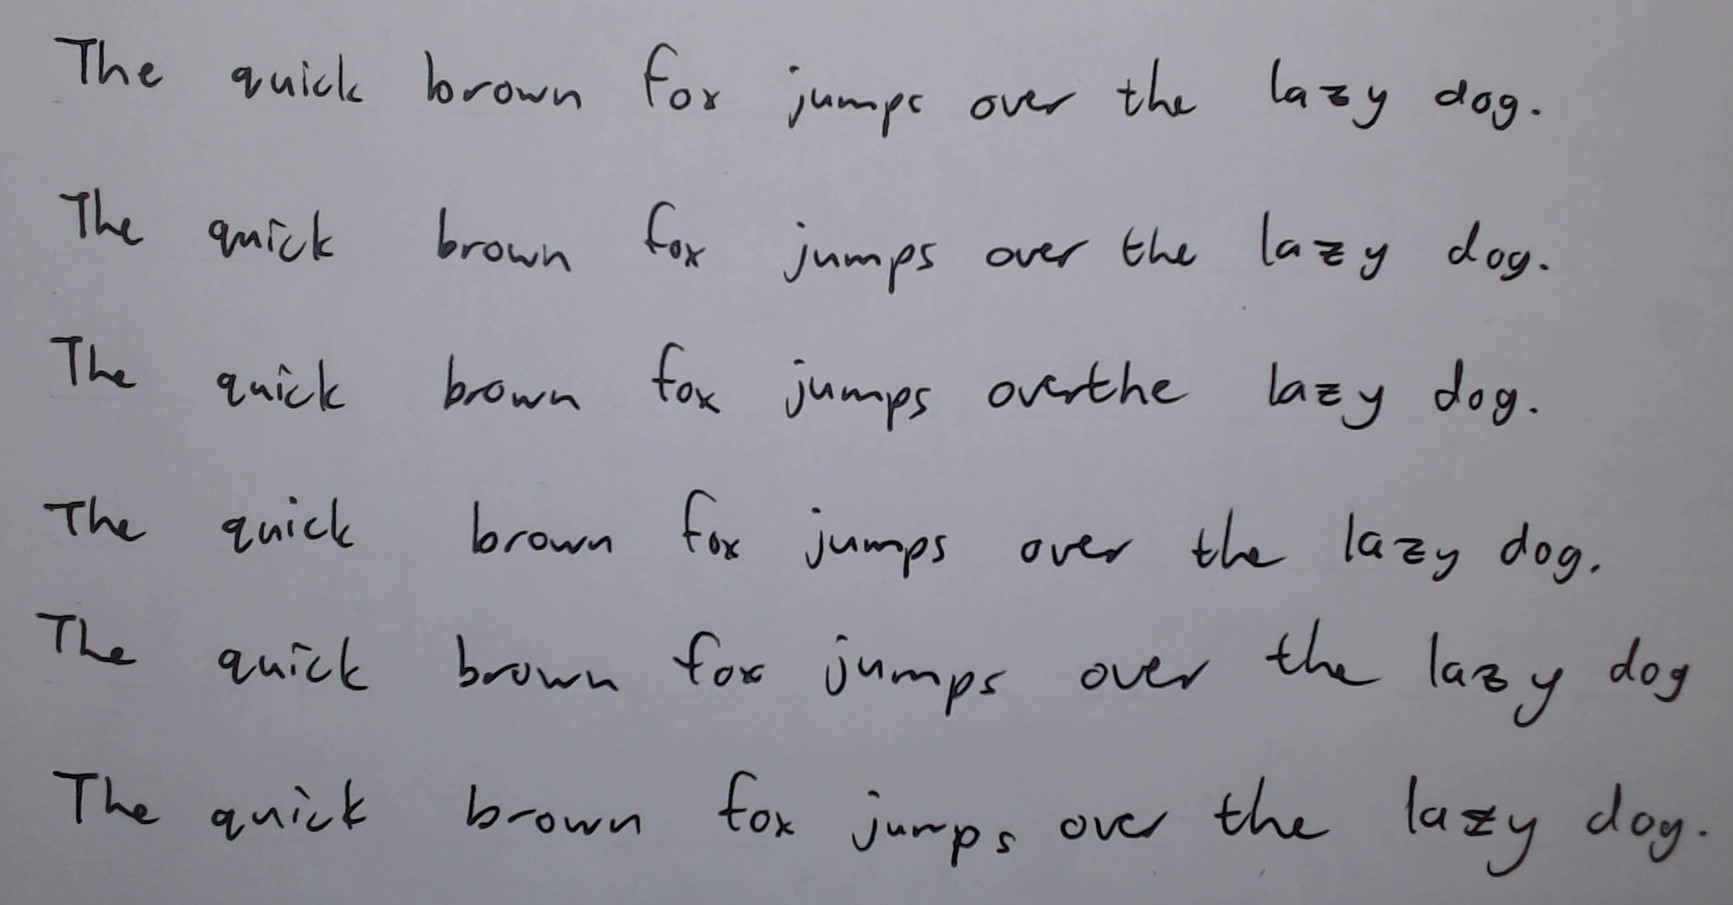 The quick brown fox jumps over the lazy dog.
The quick brown fox jumps over the lazy dog.
The quick brown fox jumps overthe lazy dog.
The quick brown fox jumps over the lazy dog.
The quick brown fox jumps over the lazy dog
The quick brown fox jumps over the lazy dog.